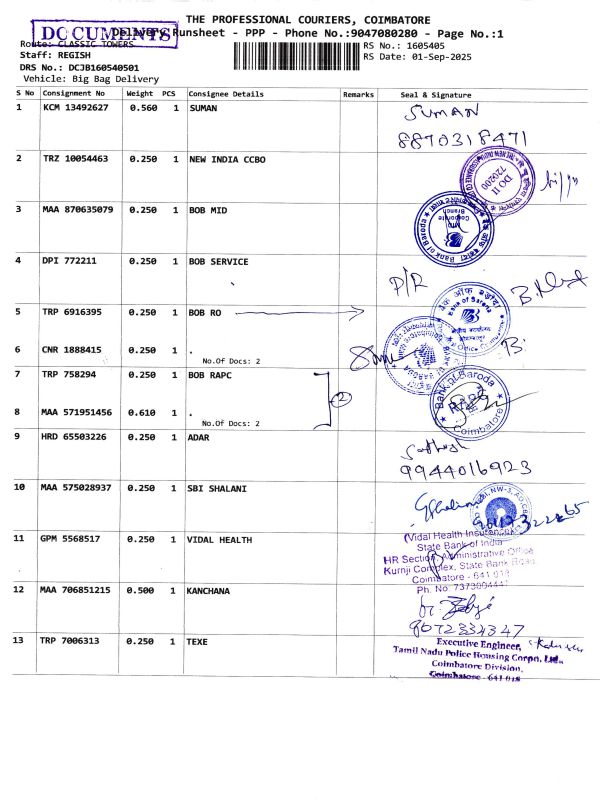 THE PROFESSIONAL COURIERS, COIMBATORE
DOCUMENTS
Delivery Runsheet - PPP - Phone No.:9047080280 - Page No.:1
Route: CLASSIC TOWERS
RS No.: 1605405
Staff: REGISH
RS Date: 01-Sep-2025
DRS No.: DCJB160540501
Vehicle: Big Bag Delivery
S No Consignment No Weight PCS Consignee Details Remarks Seal & Signature
1 KCM 13492627 0.560 1 SUMAN SUMAN
8870318471
2 TRZ 10054463 0.250 1 NEW INDIA CCBO
DO II
720200
3 MAA 870635079 0.250 1 BOB MID
Corporate
Branch
Bank of Baroda
4 DPI 772211 0.250 1 BOB SERVICE
P/R
5 TRP 6916395 0.250 1 BOB RO
बैंक ऑफ़ बड़ौदा
Bank of Baroda
6 CNR 1888415 0.250 1 .
No.Of Docs: 2
7 TRP 758294 0.250 1 BOB RAPC
2
Bank of Baroda
Coimbatore
8 MAA 571951456 0.610 1 .
No.Of Docs: 2
9 HRD 65503226 0.250 1 ADAR
9944016923
10 MAA 575028937 0.250 1 SBI SHALANI
11 GPM 5568517 0.250 1 VIDAL HEALTH
(Vidal Health Insurance
State Bank of India
HR Section, Administrative Office
Kurnji Complex, State Bank Road
Coimbatore - 641 018
Ph. No. 7373004441
12 MAA 706851215 0.500 1 KANCHANA
8072334347
13 TRP 7006313 0.250 1 TEXE
Executive Engineer,
Tamil Nadu Police Housing Corpn. Ltd.,
Coimbatore Division,
Coimbatore - 641 018